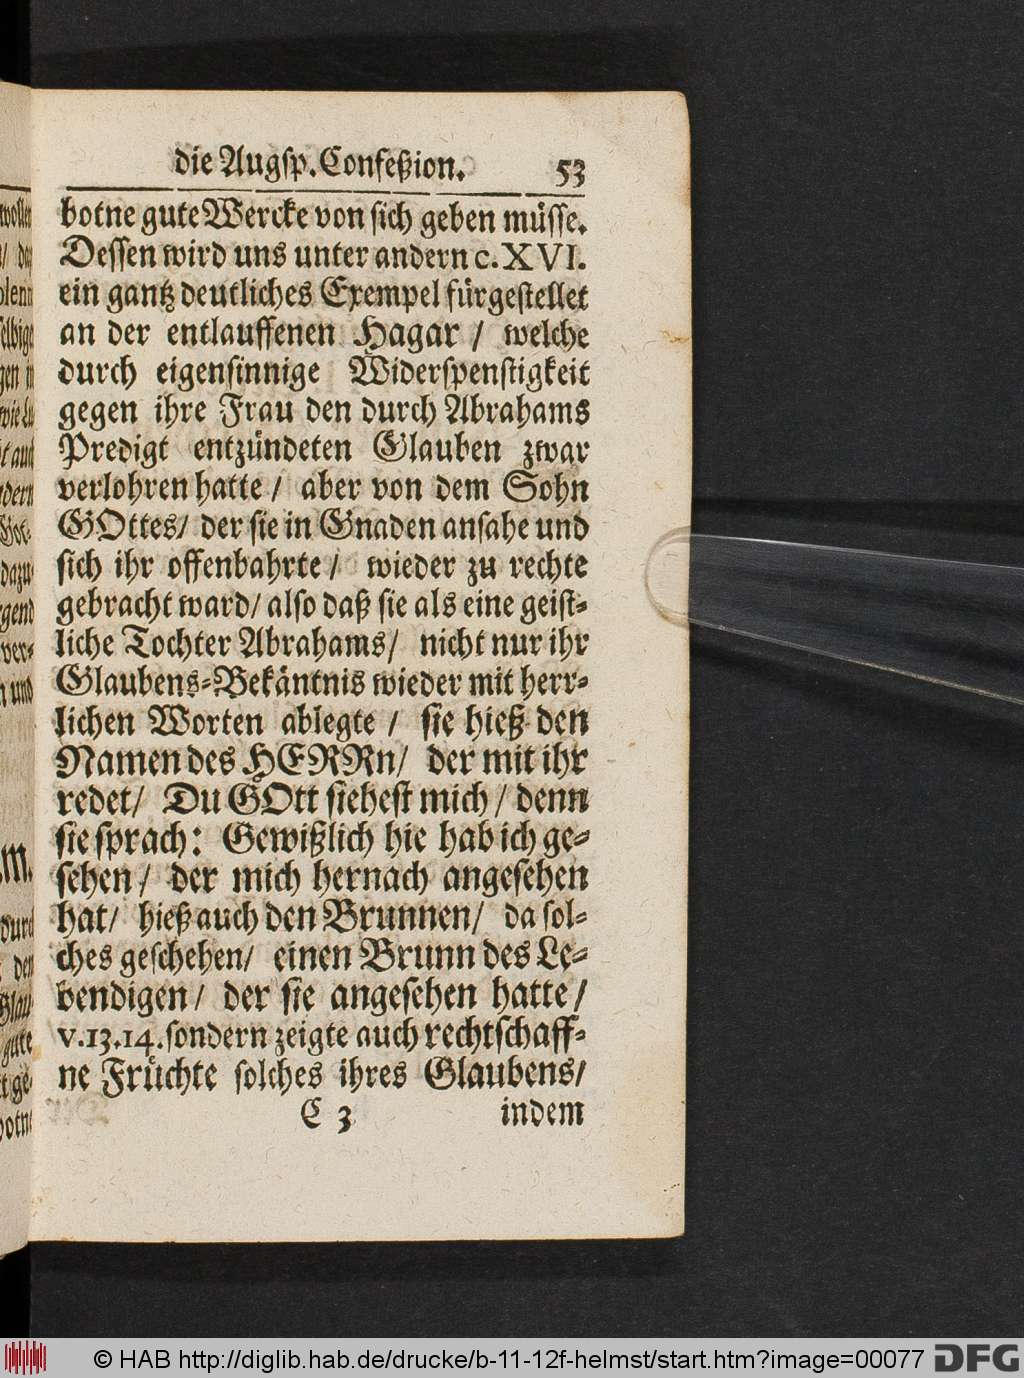 die Augsp. Confeßion. 53
botne gute Wercke von sich geben müsse.
Dessen wird uns unter andern c. XVI.
ein gantz deutliches Exempel fürgestellet
an der entlauffenen Hagar / welche
durch eigensinnige Widerspenstigkeit
gegen ihre Frau den durch Abrahams
Predigt entzündeten Glauben zwar
verlohren hatte / aber von dem Sohn
GOttes / der sie in Gnaden ansahe und
sich ihr offenbahrte / wieder zu rechte
gebracht ward / also daß sie als eine geist-
liche Tochter Abrahams / nicht nur ihr
Glaubens-Bekäntnis wieder mit herr-
lichen Worten ablegte / sie hieß den
Namen des HERRn / der mit ihr
redet / Du GOtt siehest mich / denn
sie sprach: Gewißlich hie hab ich ge-
sehen / der mich hernach angesehen
hat / hieß auch den Brunnen / da sol-
ches geschehen / einen Brunn des Le-
bendigen / der sie angesehen hatte /
v. 13. 14. sondern zeigte auch rechtschaff-
ne Früchte solches ihres Glaubens /
C 3 indem
© HAB http://diglib.hab.de/drucke/b-11-12f-helmst/start.htm?image=00077 DFG